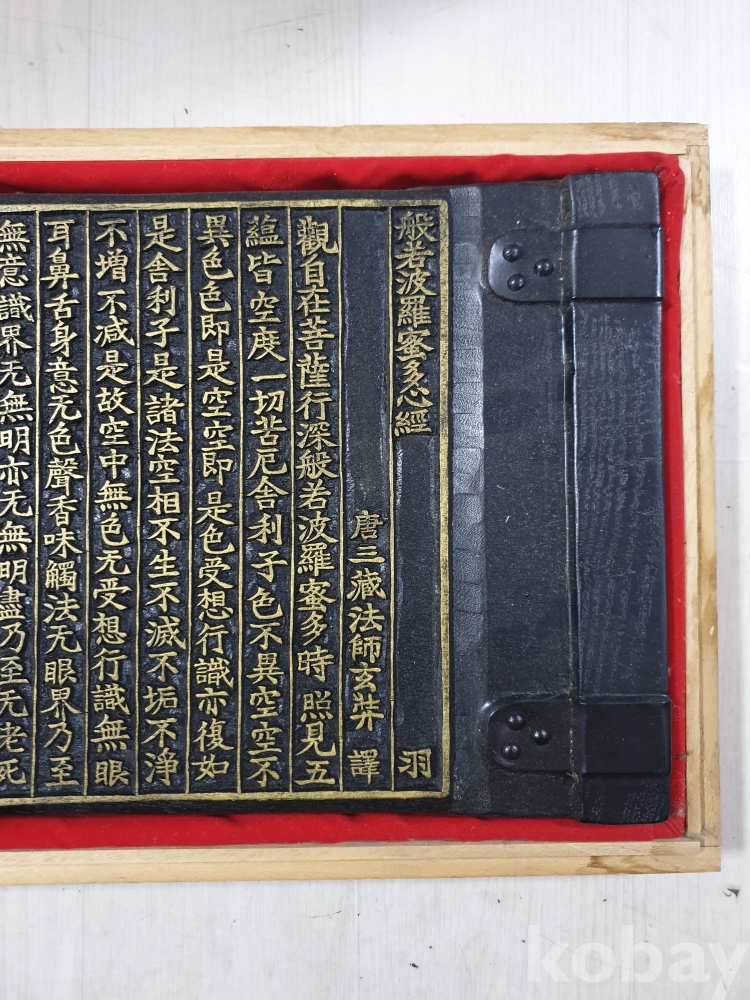 般若波羅蜜多心經 羽
唐三藏法師玄奘 譯
觀自在菩薩行深般若波羅蜜多時照見五
蘊皆空度一切苦厄舍利子色不異空空不
異色色即是空空即是色受想行識亦復如
是舍利子是諸法空相不生不滅不垢不淨
不增不减是故空中無色无受想行識無眼
耳鼻舌身意无色聲香味觸法无眼界乃至
無意識界无無明亦无無明盡乃至无老死
kobay